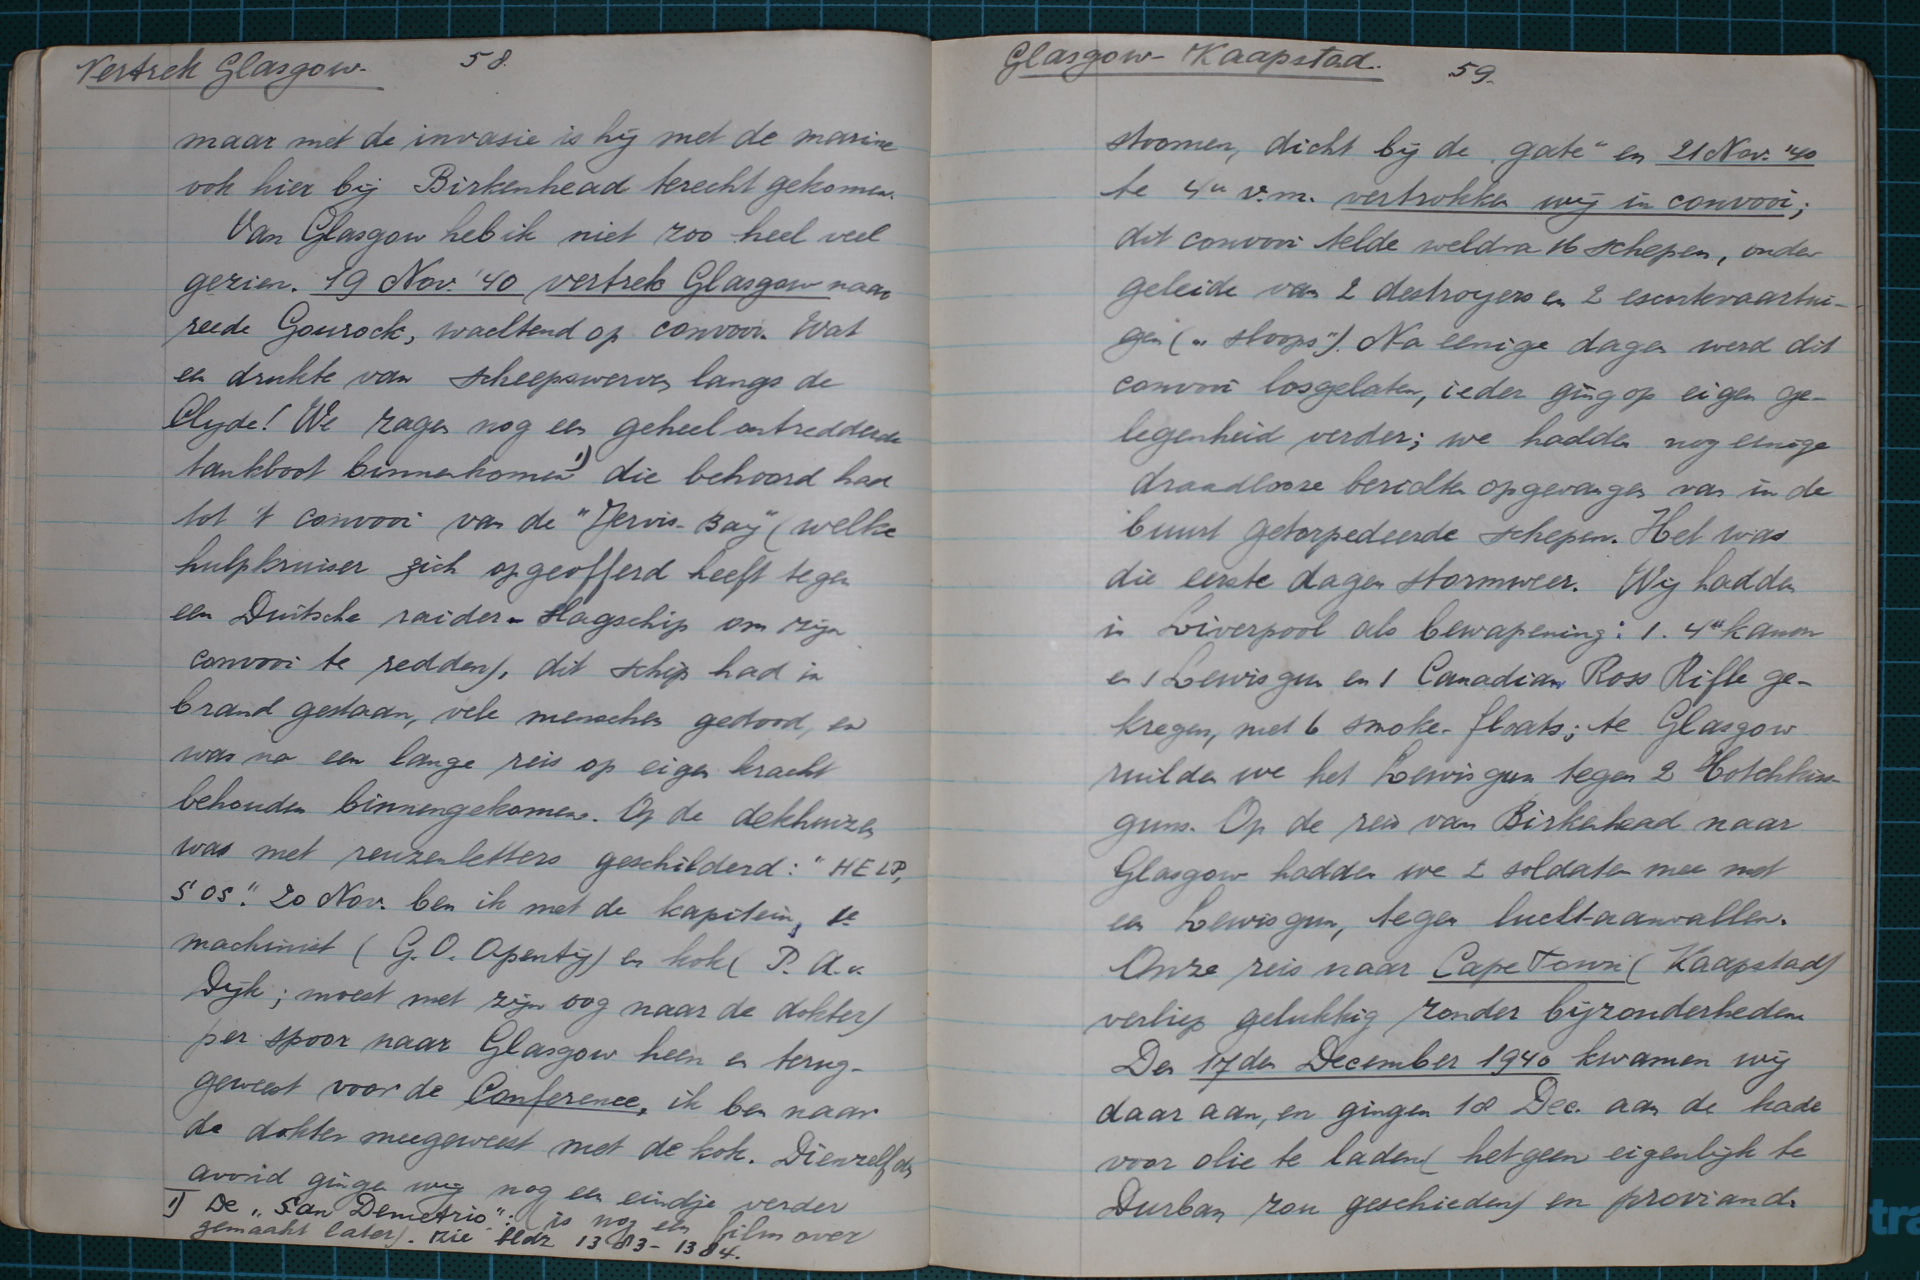 Vertrek Glasgow.
58.
maar met de invasie is hij met de marine
ook hier bij Birkenhead terecht gekomen.
Van Glasgow heb ik niet zoo heel veel
gezien. 19 Nov. '40 vertrek Glasgow naar
reede Gourock, wachtend op convooi. Wat
een drukte van scheepswerven langs de
Clyde! We zagen nog een geheel ontredderde
tankboot binnenkomen 1) die behoord had
tot 't convooi van de "Jervis-Bay" (welke
hulpkruiser zich opgeofferd heeft tegen
een Duitsche raider-slagschip om zijn
convooi te redden), dit schip had in
brand gestaan, vele menschen gedood, en
was na een lange reis op eigen kracht
behouden binnengekomen. Op de dekhuizen
was met reuzenletters geschilderd: "HELP,
SOS". 20 Nov. ben ik met de kapitein, 1e
machinist (G.O. Apentij) en kok (P. A. v.
Dijk; moest met zijn oog naar de dokter)
per spoor naar Glasgow heen en terug-
geweest voor de Conference, ik ben naar
de dokter meegeweest met de kok. Dienzelfden
avond gingen wij nog een eindje verder
1) De "San Demetrio": (is nog een film over
gemaakt later). zie bldz 1383-1384.
Glasgow-Kaapstad.
59.
stoomen, dicht bij de "gate" en 21 Nov. '40
te 4u v.m. vertrokken wij in convooi;
dit convooi telde weldra 16 schepen, onder
geleide van 2 destroyers en 2 escortevaartui-
gen ("sloops"). Na eenige dagen werd dit
convooi losgelaten, ieder ging op eigen ge-
legenheid verder; we hadden nog eenige
draadlooze berichten opgevangen van in de
buurt getorpedeerde schepen. Het was
die eerste dagen stormweer. Wij hadden
in Liverpool als bewapening: 1. 4" kanon
en 1 Lewisgun en 1 Canadian Ross Rifle ge-
kregen, met 6 smoke-floats; te Glasgow
ruilden we het Lewisgun tegen 2 Hotchkiss
guns. Op de reis van Birkenhead naar
Glasgow hadden we 2 soldaten mee met
een Lewisgun, tegen luchtaanvallen.
Onze reis naar Cape Town (Kaapstad)
verliep gelukkig zonder bijzonderheden.
Den 17den December 1940 kwamen wij
daar aan, en gingen 18 Dec. aan de kade
voor olie te laden (hetgeen eigenlijk te
Durban zou geschieden) en proviand.
tra